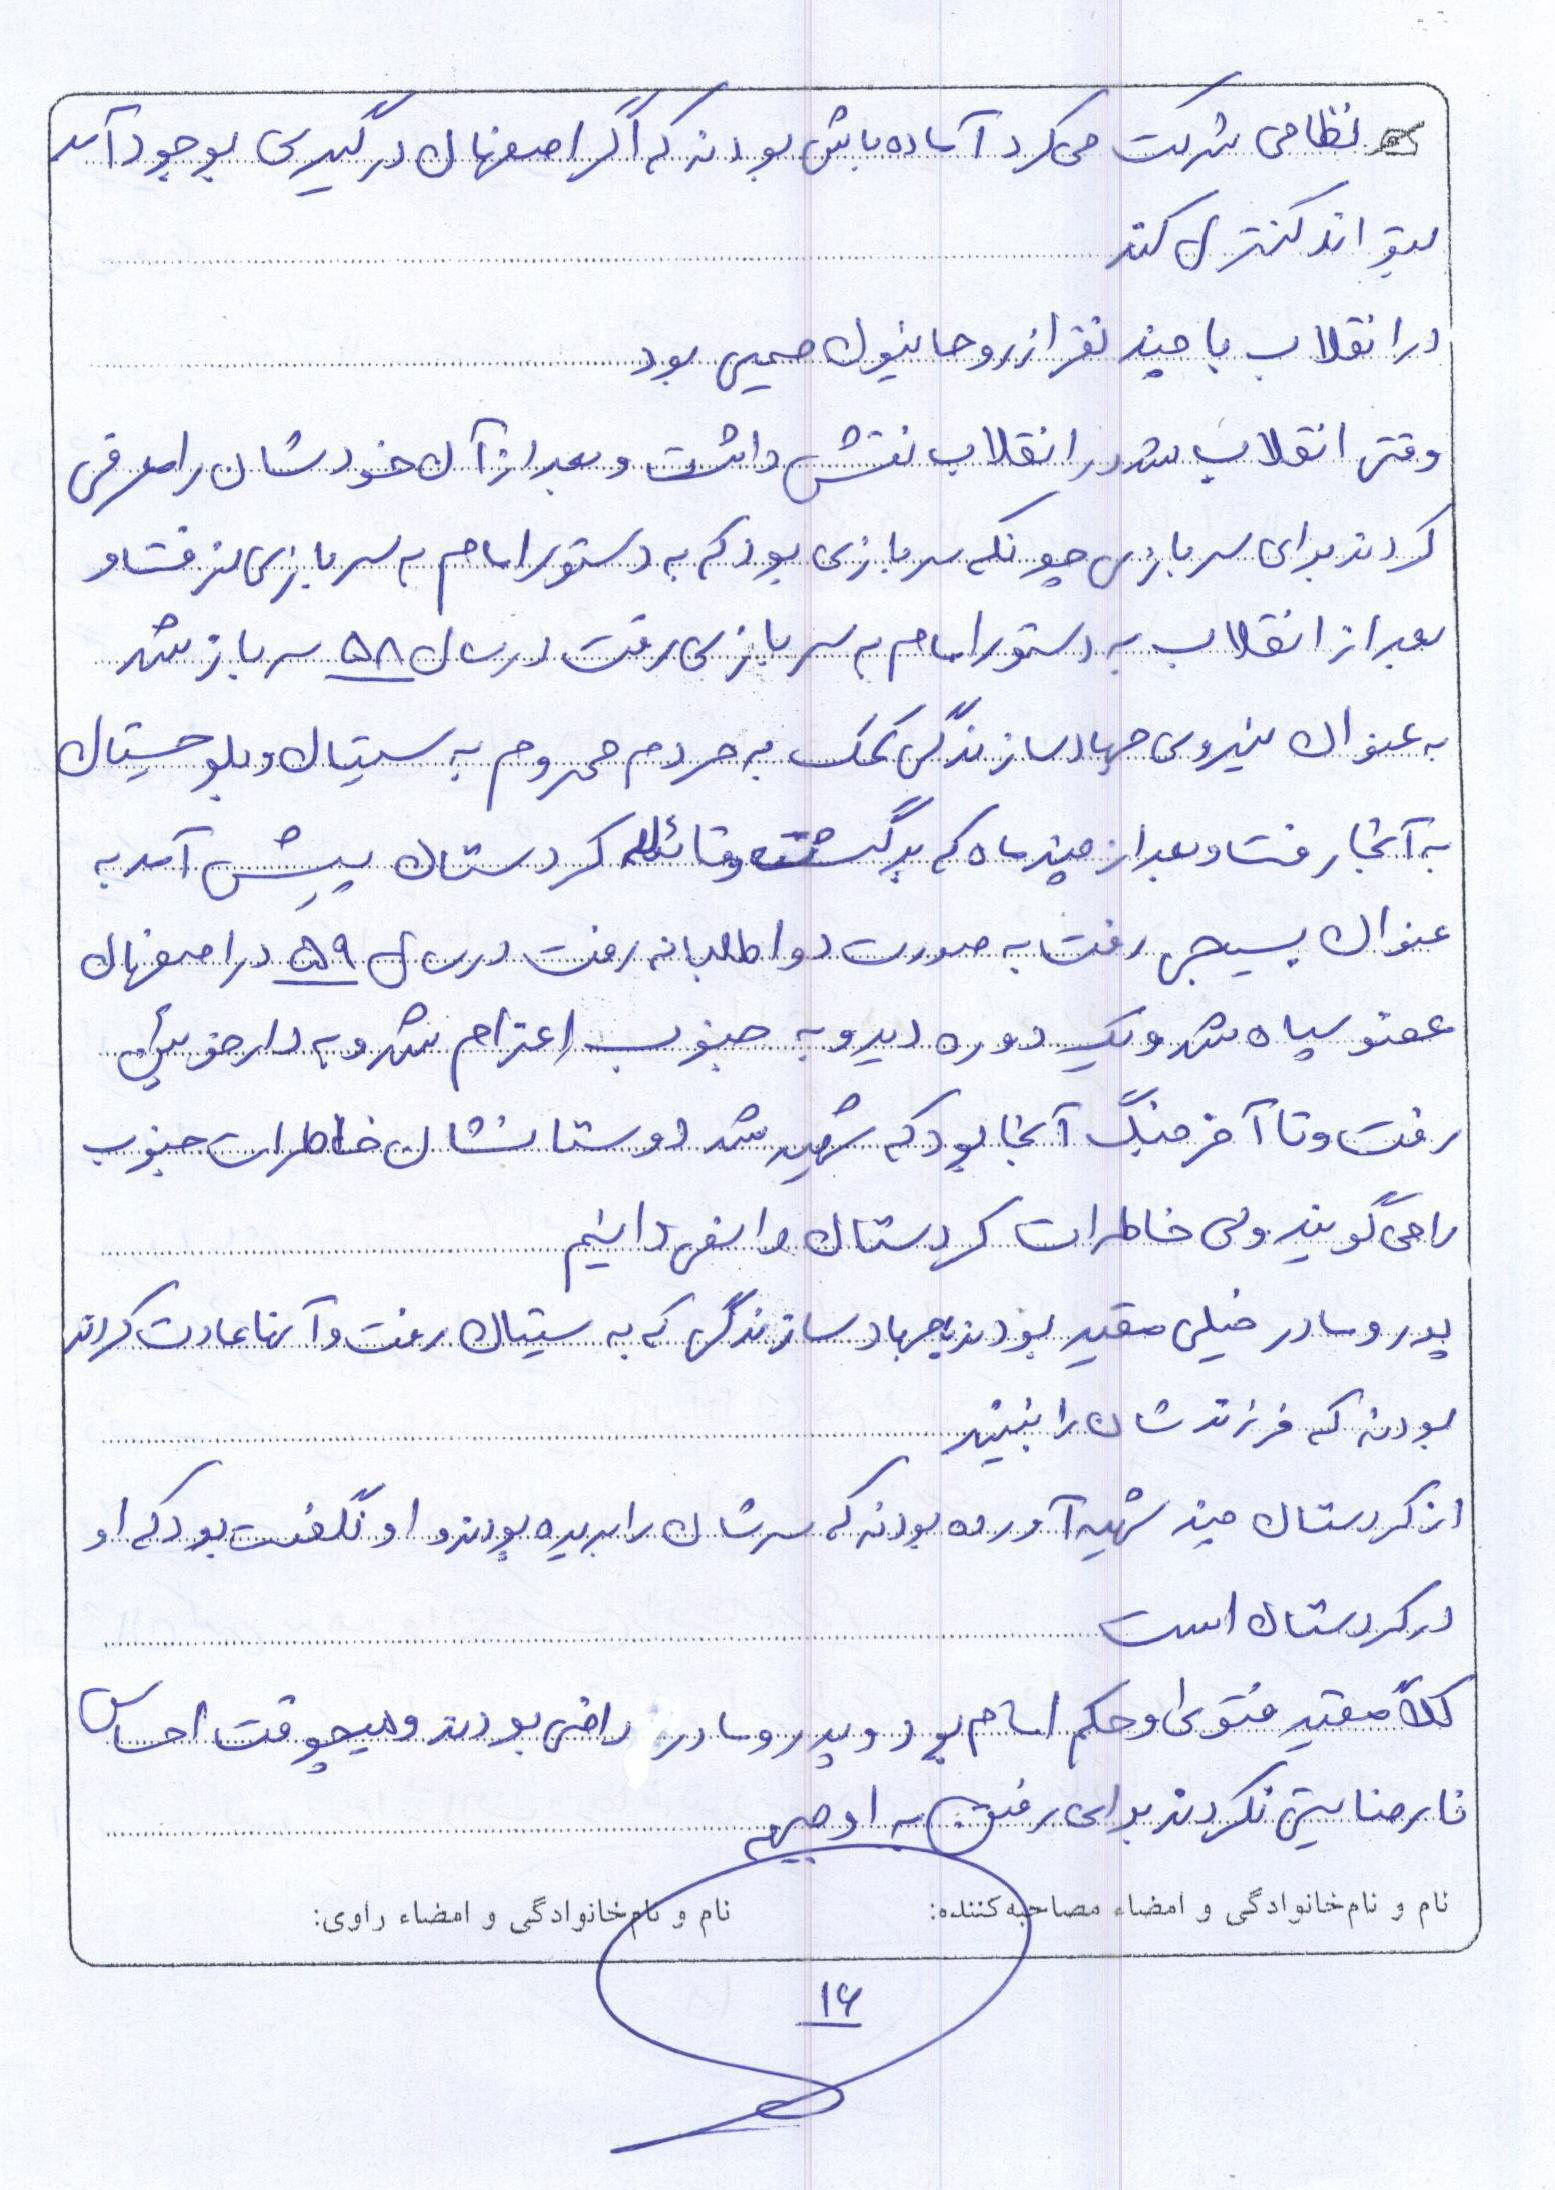 نظامی شرکت می‌کرد آماده باش بودند که اگر اصفهان درگیری بوجود آمد
بتواند کنترل کند
در انقلاب با چند نفر از روحانیون صمیمی بود
وقتی انقلاب شد در انقلاب نقش داشت و بعد از آن خودشان را معرفی
کردند برای سربازی چونکه سربازی بود که به دستور امام به سربازی نرفت و
بعد از انقلاب به دستور امام به سربازی رفت در سال ۵۸ سرباز شد
به عنوان نیروی جهاد سازندگی کمک به مردم محروم به سیستان و بلوچستان
به آنجا رفت و بعد از چند ماه که برگشت و قائله کردستان پیش آمد به
عنوان بسیجی رفت به صورت دواطلبانه رفت در سال ۵۹ در اصفهان
عضو سپاه شد و یک دوره دید و به جنوب اعزام شد و به دارخوین
رفت و تا آخر جنگ آنجا بود که شهید شد دوستانشان خاطرات جنوب
را می‌گویند ولی خاطرات کردستان را نمی‌دانیم
پدر و مادر خیلی مقید بودند به جهاد سازندگی که به سیستان رفت و آنها عادت کرده
بودند که فرزندشان را نبینند
از کردستان چند شهید آورده بودند که سرشان را بریده بودند و او نگفت بود که او
در کردستان است
کلاً مقید فتوی و حکم امام بود و پدر و مادر راضی بودند و هیچوقت احساس
نارضایتی نکردند برای رفتن به او جبهه
نام و نام‌خانوادگی و امضاء مصاحبه‌کننده: نام و نام‌خانوادگی و امضاء راوی:
۱۶